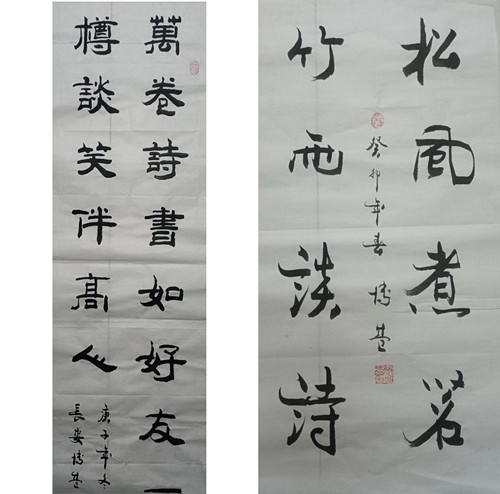 萬卷詩書如好友一
樽談笑伴高人
庚子年冬
長安博堂
松風煮茗
竹雨談詩
癸卯年春 博堂